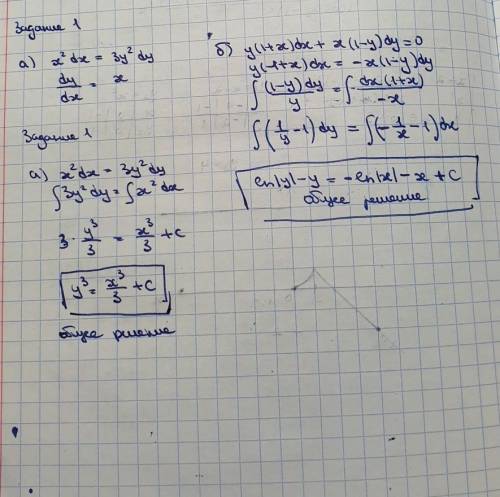 Задание 1
а) x² dx = 3y² dy
dy/dx = x
Задание 1
а) x² dx = 3y² dy
∫3y² dy = ∫x² dx
3 · y³/3 = x³/3 + C
y³ = x³/3 + C
общее решение
б) y(1+x)dx + x(1-y)dy = 0
y(1+x)dx = -x(1-y)dy
∫(1-y)dy/y = ∫dx(1+x)/-x
∫(1/y - 1)dy = ∫(-1/x - 1)dx
ln|y| - y = -ln|x| - x + C
общее решение